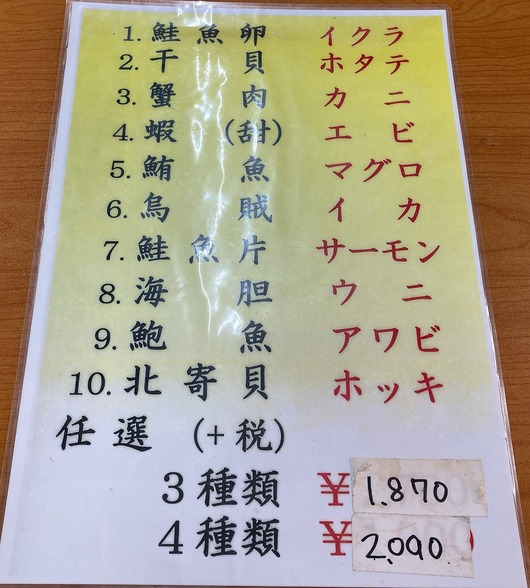 1. 鮭魚卵 イクラ
2. 干貝 ホタテ
3. 蟹肉 カニ
4. 蝦(甜) エビ
5. 鮪魚 マグロ
6. 烏賊 イカ
7. 鮭魚片 サーモン
8. 海胆 ウニ
9. 鮑魚 アワビ
10. 北寄貝 ホッキ
任選 (+税)
3種類 ¥1.870
4種類 ¥2,090